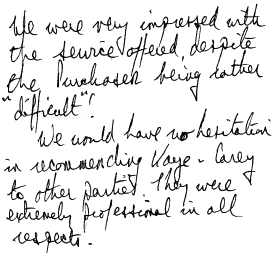 We were very impressed with
the service offered, despite
the Purchaser being rather
"difficult"!
We would have no hesitation
in recommending Kaye - Carey
to other parties. They were
extremely professional in all
respects.